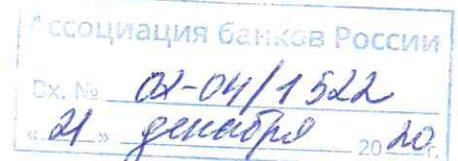 Ассоциация банков России
Вх. № 02-04/1522
«21» декабря 2020 г.